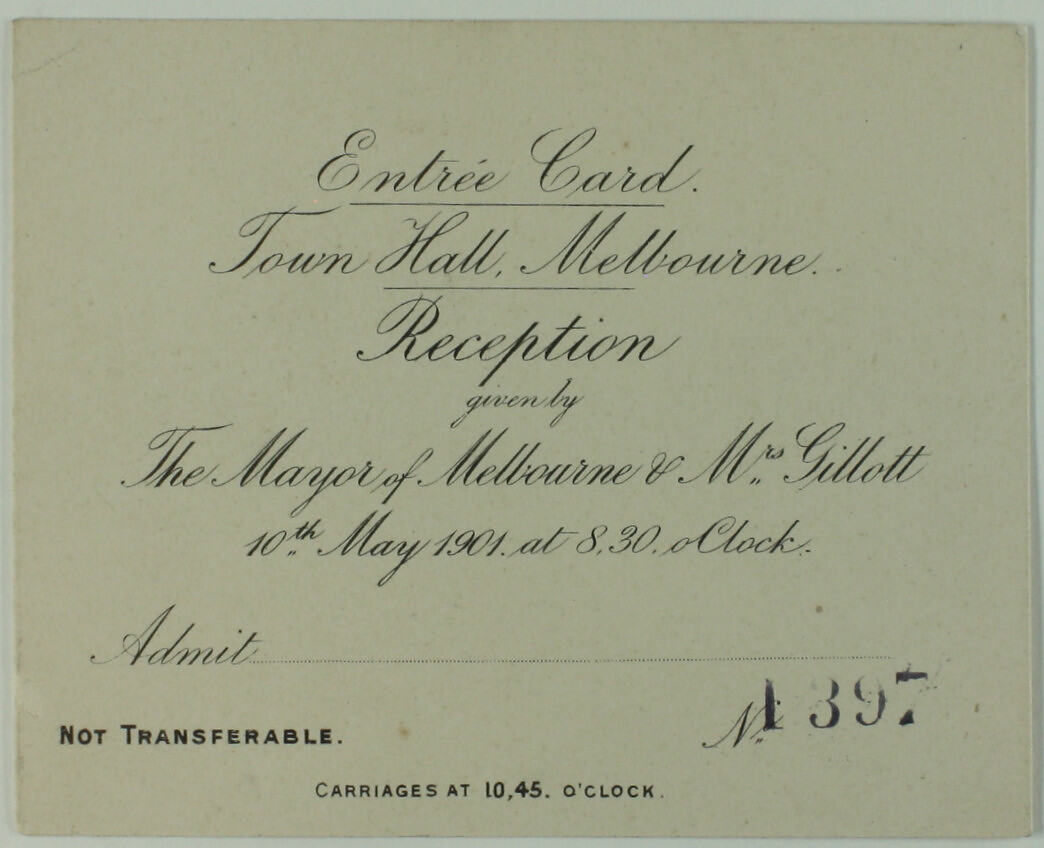 Entrée Card.
Town Hall, Melbourne.
Reception
given by
The Mayor of Melbourne & Mrs Gillott
10th May 1901. at 8.30. oClock.
Admit
No 1397
NOT TRANSFERABLE.
CARRIAGES AT 10,45. O'CLOCK.